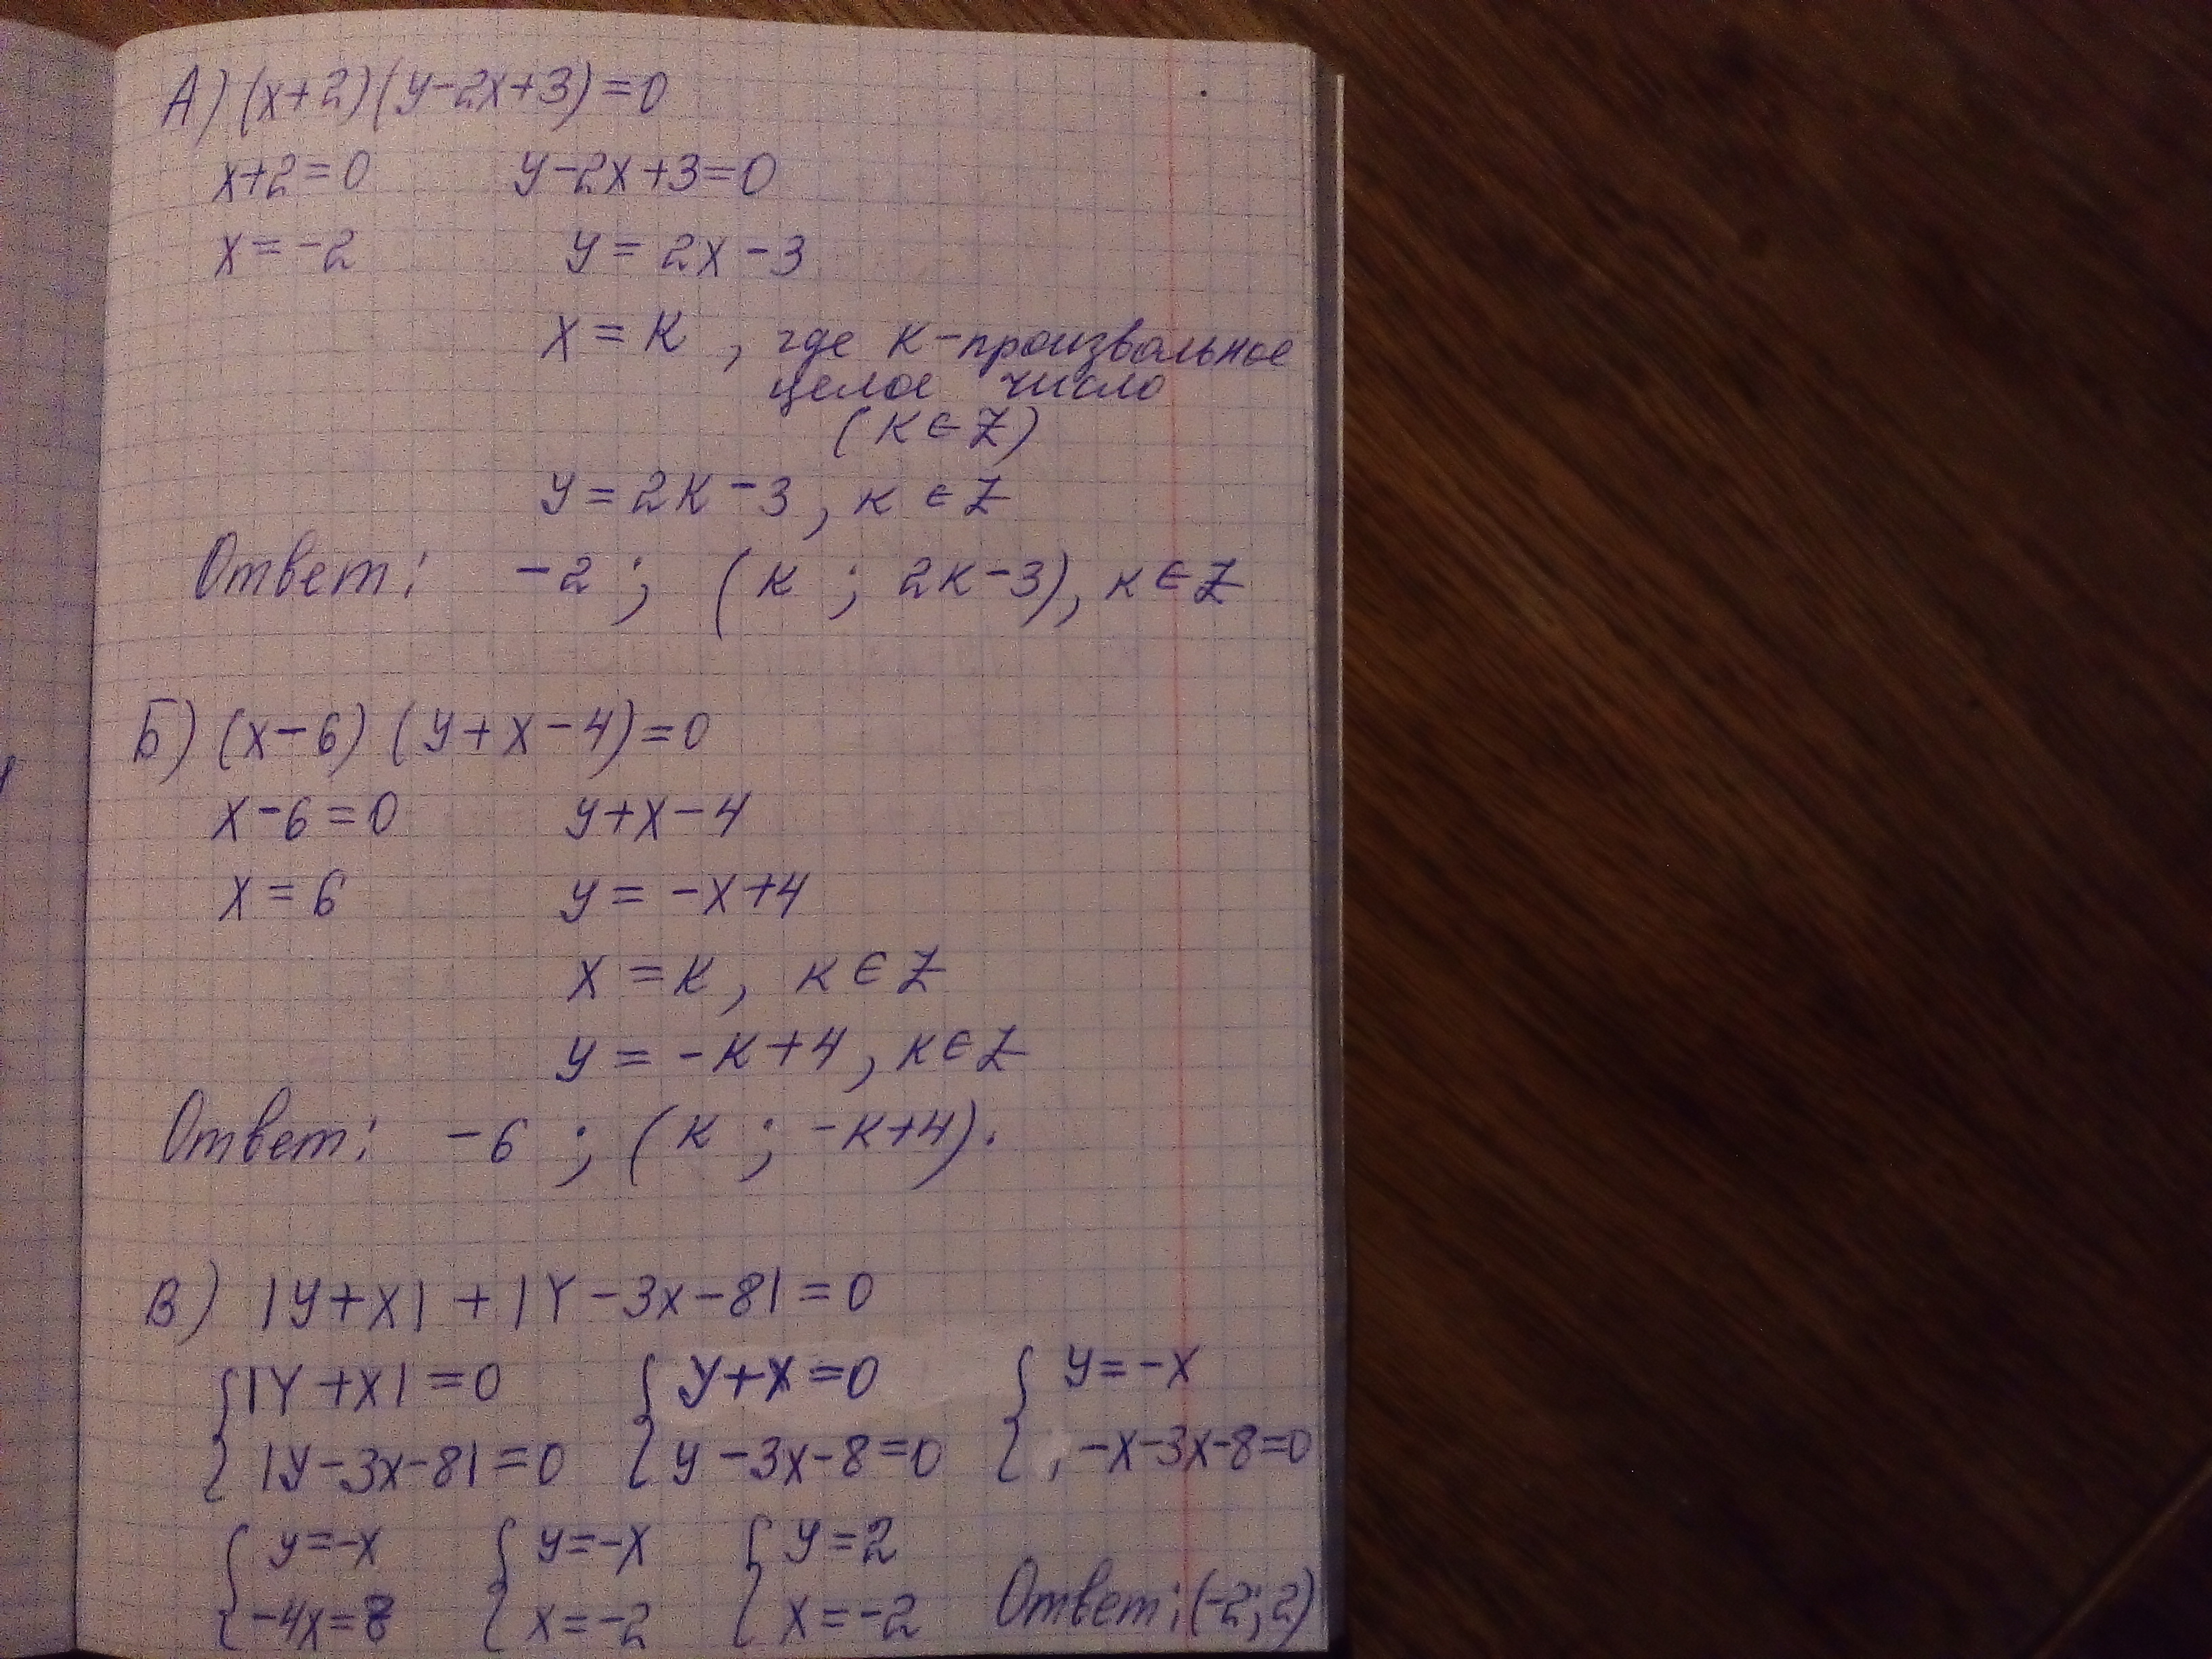 А) (x+2)(y-2x+3)=0
x+2=0 y-2x+3=0
x=-2 y=2x-3
x=к, где к-произвольное
целое число
(к∈Z)
y=2к-3, к∈Z
Ответ: -2; (к; 2к-3), к∈Z
Б) (x-6)(y+x-4)=0
x-6=0 y+x-4
x=6 y=-x+4
x=к, к∈Z
y=-к+4, к∈Z
Ответ: -6; (к; -к+4).
В) |y+x|+|y-3x-8|=0
{|y+x|=0 {y+x=0 {y=-x
|y-3x-8|=0 y-3x-8=0 -x-3x-8=0
{y=-x {y=-x {y=2
-4x=8 x=-2 x=-2 Ответ: (-2; 2)